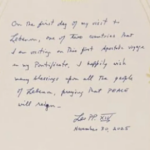 On the first day of my visit in
Lebanon, one of three countries that
I am visiting on this first Apostolic voyage
in my Pontificate, I happily wish
many blessings upon all the people
of Lebanon, praying that PEACE
will reign.
Leo PP. XIV
November 30, 2025